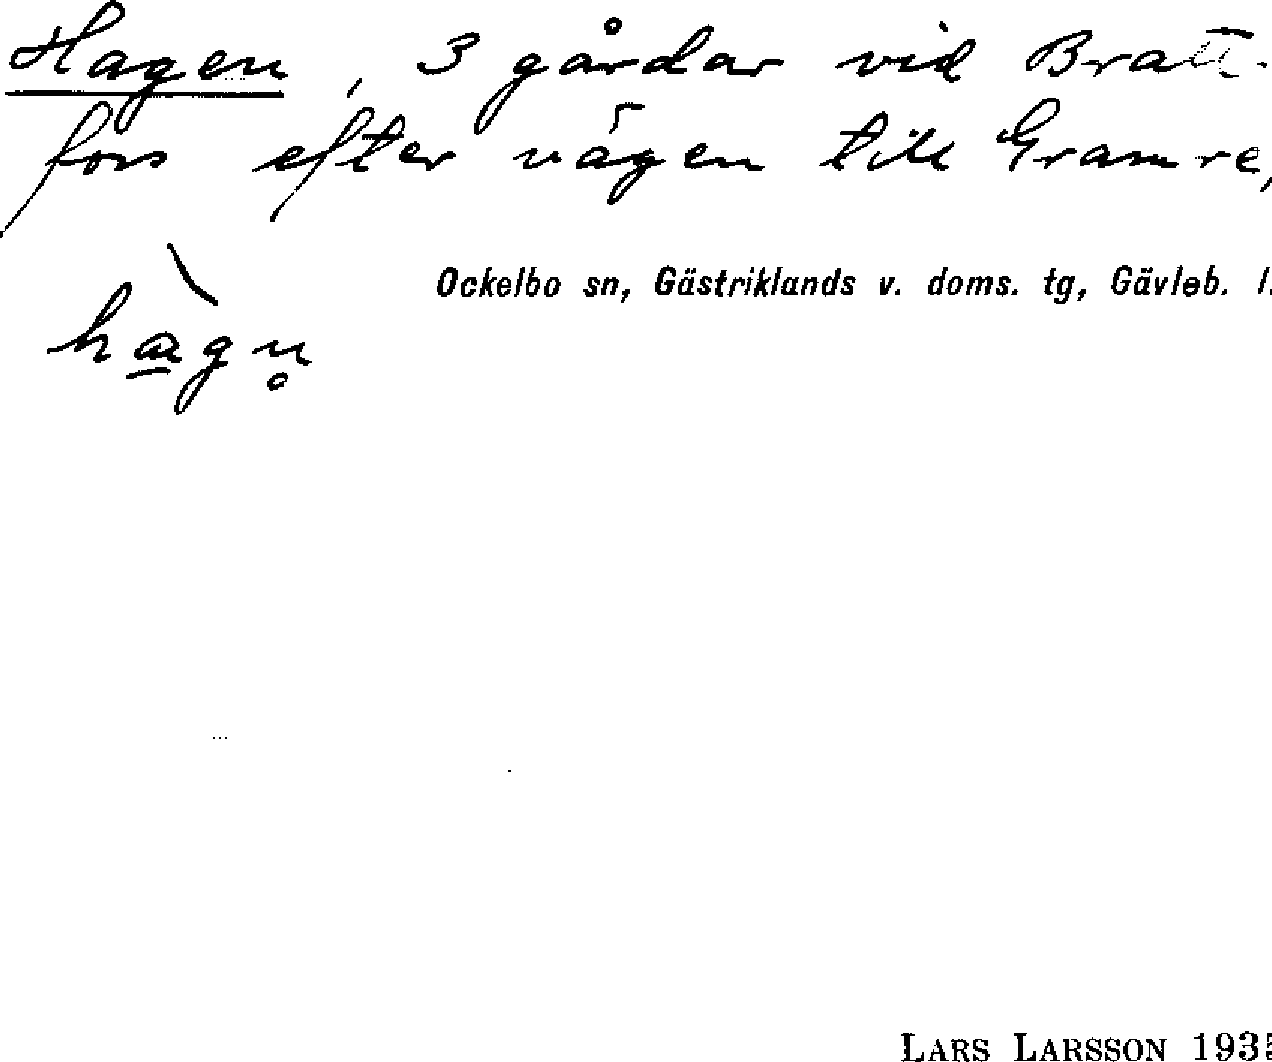 Hagen, 3 gårdar vid Bratt-
fors efter vägen till Gramre,
Ockelbo sn, Gästriklands v. doms. tg, Gävleb. l.
hægn̥
LARS LARSSON 1935